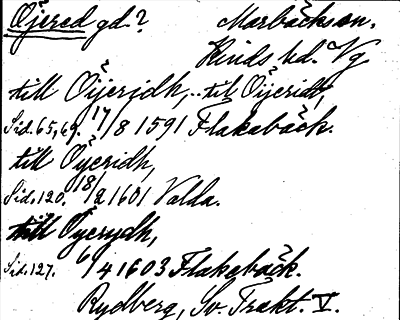 Öijered gd? Marbäckssn.
Kinds hd. Vg
till Öijeridh, .. til Öijeridt,
Sid. 65, 69. 17/8 1591 Flakabäck.
till Öyeridh,
Sid. 120. 18/2 1601 Valda.
till Öyerydh,
Sid. 127. 6/4 1603 Flakabäck.
Rydberg, Sv. Trakt. V.